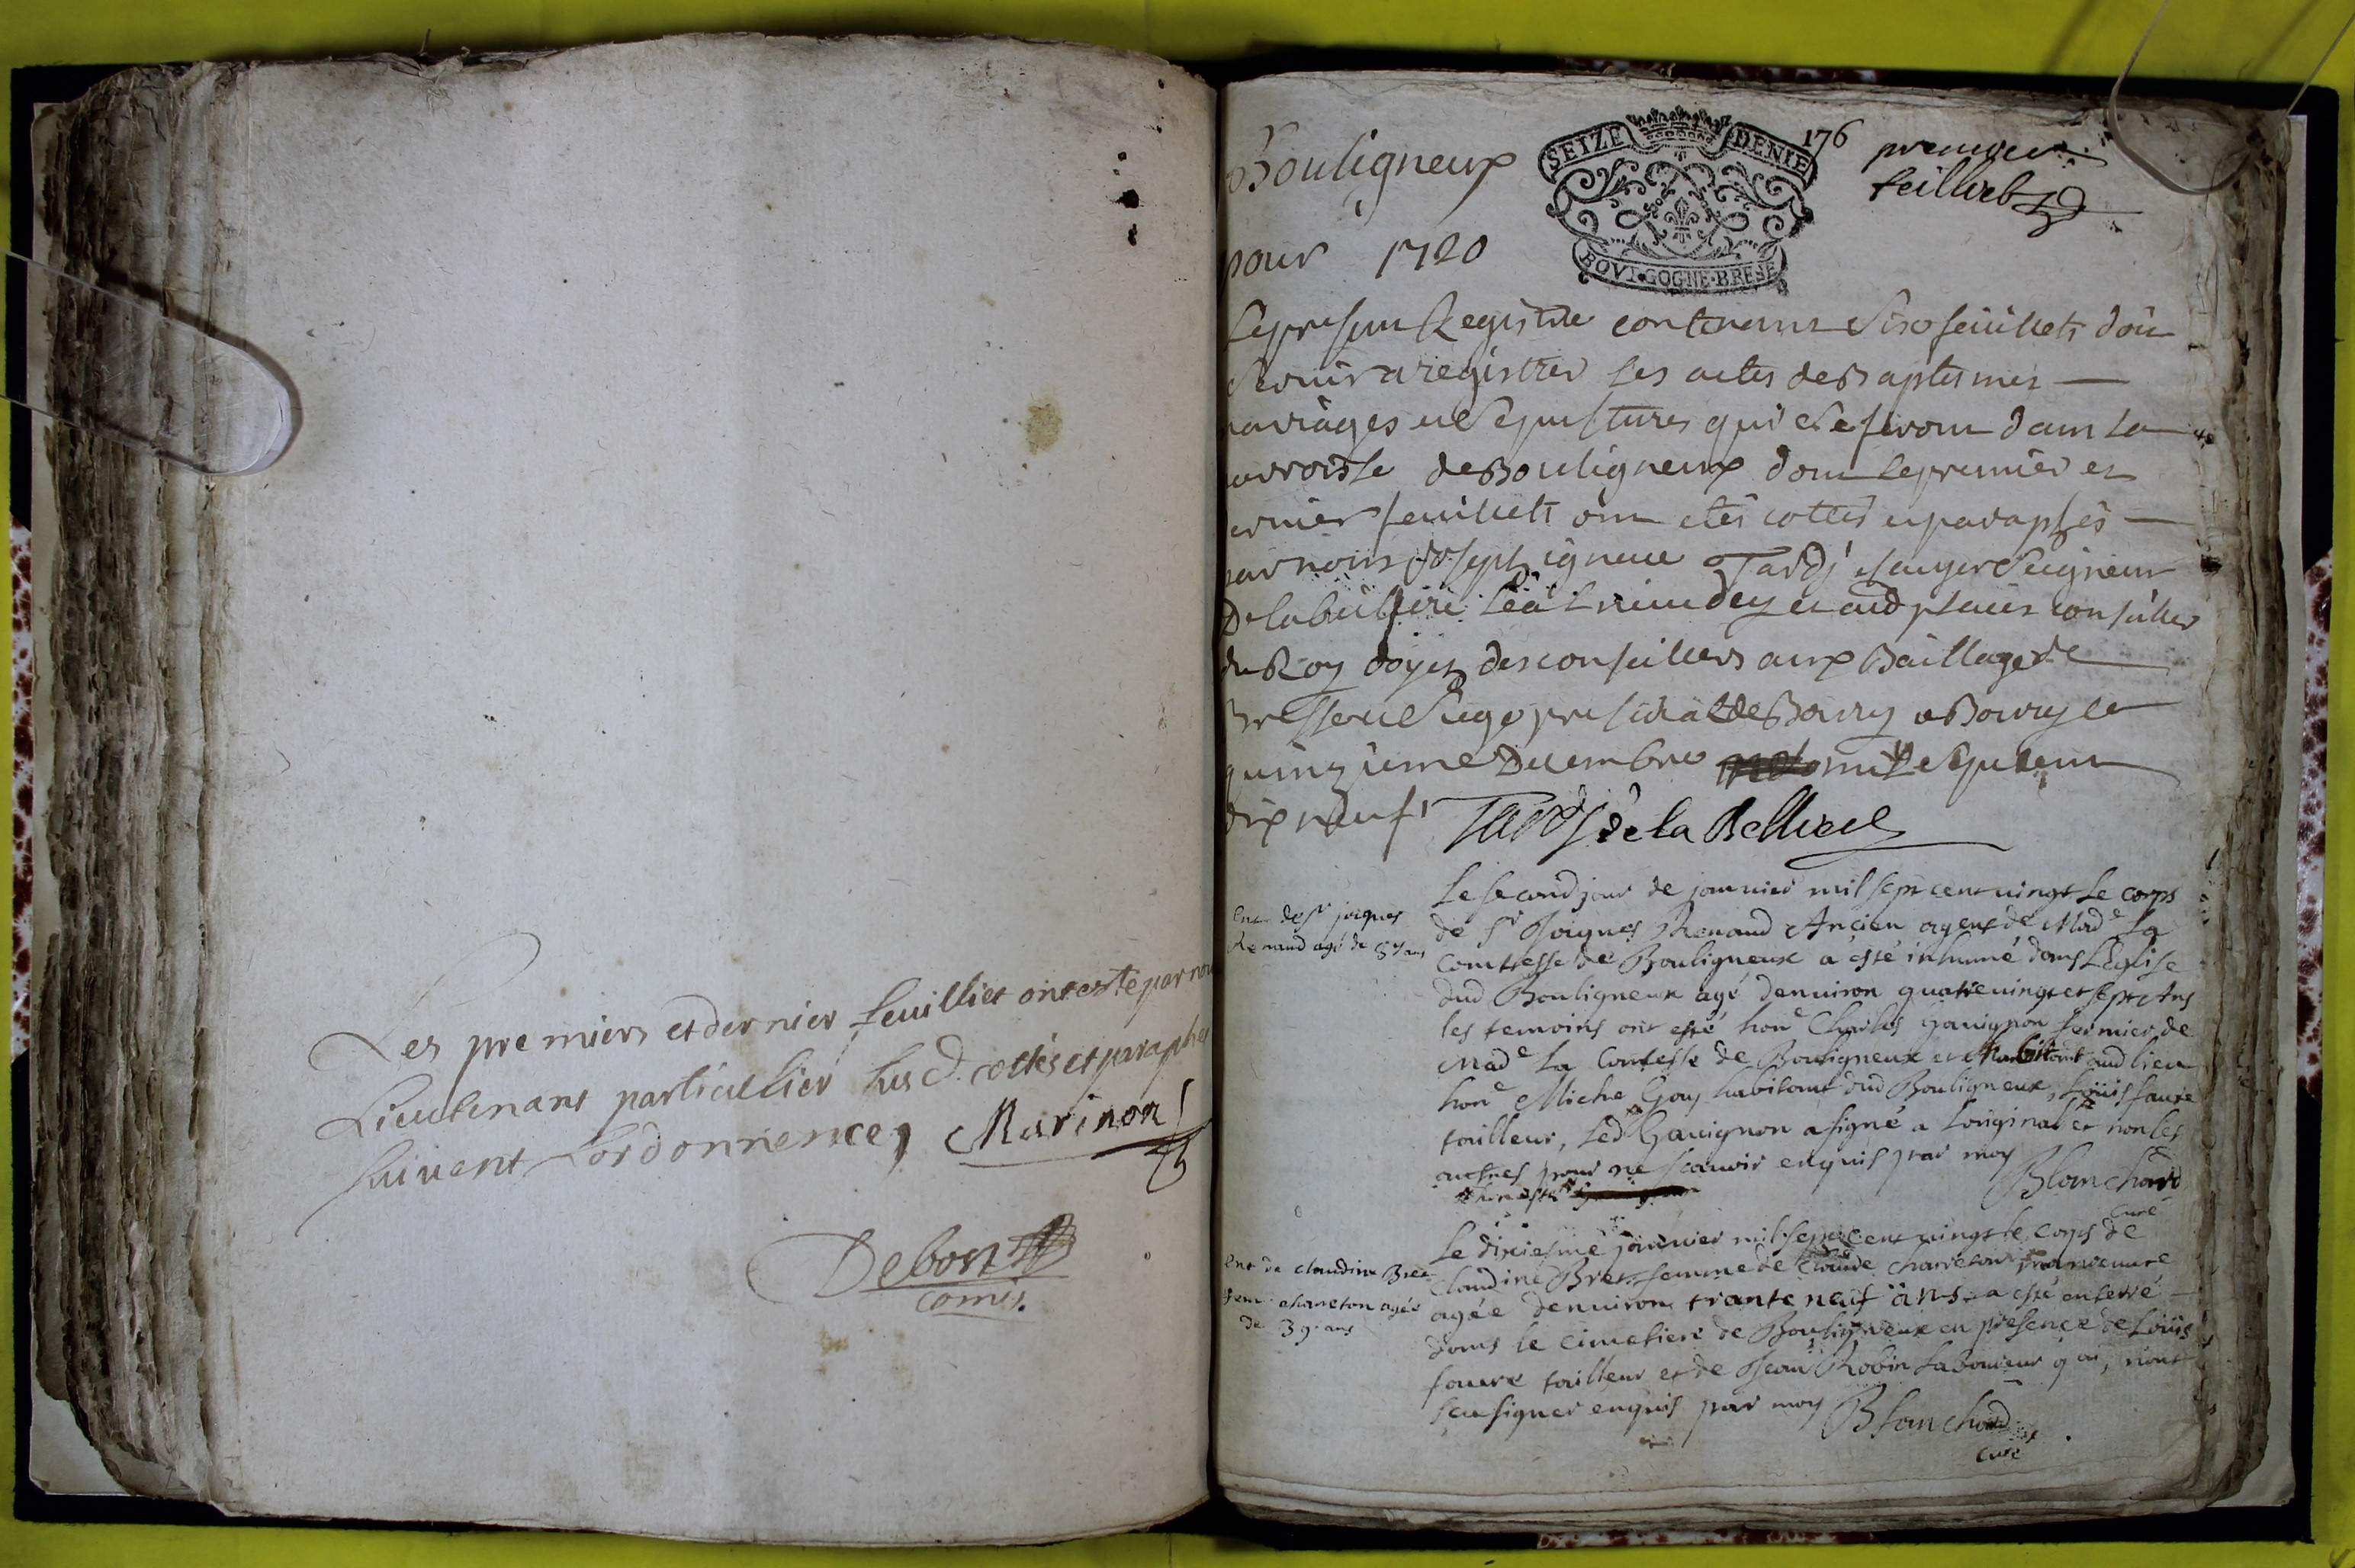 Les premiers et dernier feuilliet ont esté par nou
Lieutenant particullier susd. cottés et paraphés
suivent Lordonnence, Marinon
Debost
comis.
Bouligneux
SEIZE DENIE
176
premier
feilliet
pour 1720
BOVRGOGNE BRESSE
Le present Registre contenant six feuillets doit
servir a registrer les actes de Baptesmes
mariages et Sepultures qui se feront dans La
parroisse de Bouligneux dont le premier et
dernier feuillets ont etés cottés et paraphés
par nous Joseph igneace Tardy escuyer Seigneur
De la belliere et autres places conseiller
du Roy doyen des conseillers aux Baillage de
Bresse et siege presidial de Bourg a Bourg le
quinzieme Decembre mil sept cent
dix neuf Tardy de la Belliere
Ent. de Sr jacques
Renaud agé de 87 ans
Le second jour de janvier mil sept cent vingt Le corps
de Sr Jacques Renaud Ancien agent de Made La
Comtesse de Bouligneux a esté inhumé dans L'Eglise
dud Bouligneux agé denviron quatrevingt et sept Ans
les temoins ont esté hone Charles Gavignon fermier de
Made La Contesse de Bouligneux et habitant aud lieu
hone Miche Goy habitant dud Bouligneux, Loüis faure
tailleur, Led Gavignon a signé a Loriginal et non les
autres pour ne scavoir enquis par moy
Blanchard
curé
Ent de claudine Bret
fem. chareton agée
de 39 ans
Le dixiesme janvier mil sept cent vingt le corps de
Claudine Bret femme de Claude chareton
agée denviron trante neuf ans a esté enterré
dans le cimetiere de Bouligneux en presence de Loüis
faure tailleur et de Jean Robin Laboureur qui n'ont
sceu signer enquis par moy Blanchard
curé